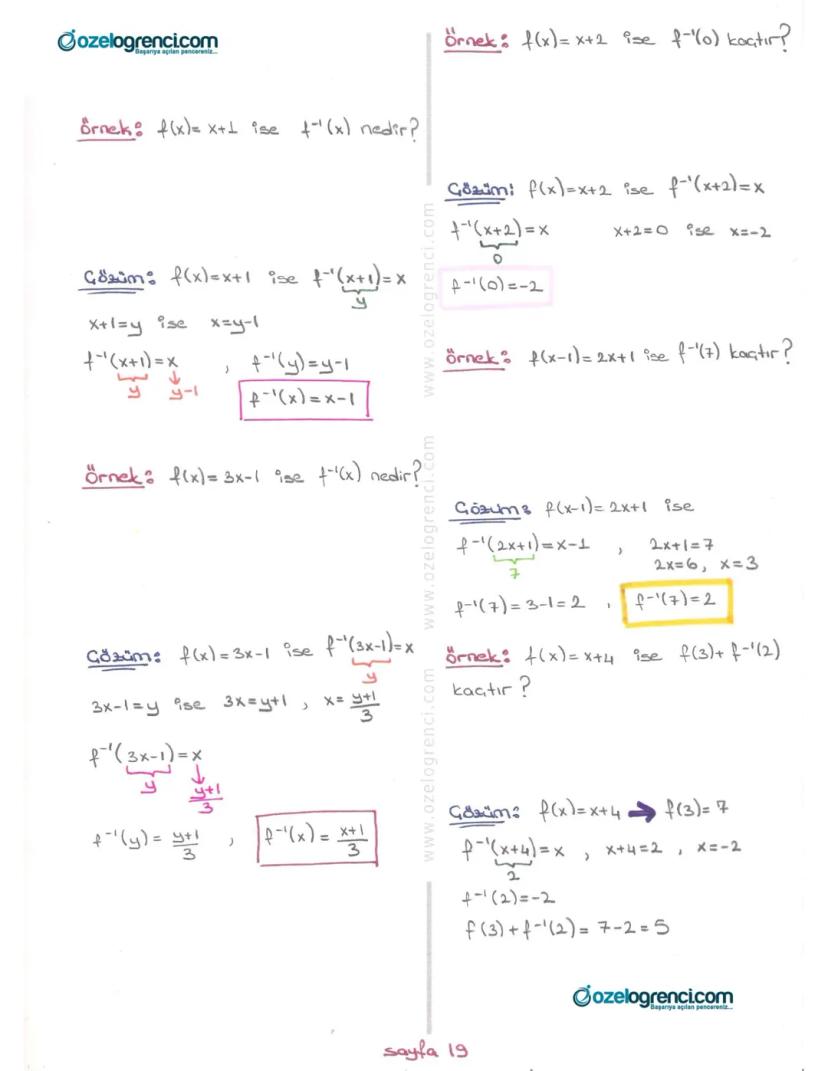 ozelogrenci.com
Başarıya açılan pencereniz...
Örnek: f(x)= x+1 ise f⁻¹(x) nedir?
Çözüm: f(x)=x+1 ise f⁻¹(x+1)=x
y
x+1=y ise x=y-1
f⁻¹(x+1)=x , f⁻¹(y)=y-1
y y-1
f⁻¹(x)=x-1
Örnek: f(x)= 3x-1 ise f⁻¹(x) nedir?
Çözüm: f(x)=3x-1 ise f⁻¹(3x-1)=x
y
3x-1=y ise 3x=y+1 , x=(y+1)/3
f⁻¹(3x-1)=x
y (y+1)/3
f⁻¹(y)= (y+1)/3 , f⁻¹(x)= (x+1)/3
www.ozelogrenci.com www.ozelogrenci.com www.ozelogrenci.com
Örnek: f(x)= x+2 ise f⁻¹(0) kaçtır?
Çözüm: f(x)=x+2 ise f⁻¹(x+2)=x
f⁻¹(x+2)=x x+2=0 ise x=-2
0
f⁻¹(0)=-2
Örnek: f(x-1)=2x+1 ise f⁻¹(7) kaçtır?
Çözüm: f(x-1)=2x+1 ise
f⁻¹(2x+1)=x-1 , 2x+1=7
7
2x=6, x=3
f⁻¹(7)=3-1=2 , f⁻¹(7)=2
Örnek: f(x)=x+4 ise f(3)+f⁻¹(2)
kaçtır?
Çözüm: f(x)=x+4 → f(3)=7
f⁻¹(x+4)=x , x+4=2 , x=-2
2
f⁻¹(2)=-2
f(3)+f⁻¹(2)= 7-2=5
ozelogrenci.com
Başarıya açılan pencereniz...
sayfa 19